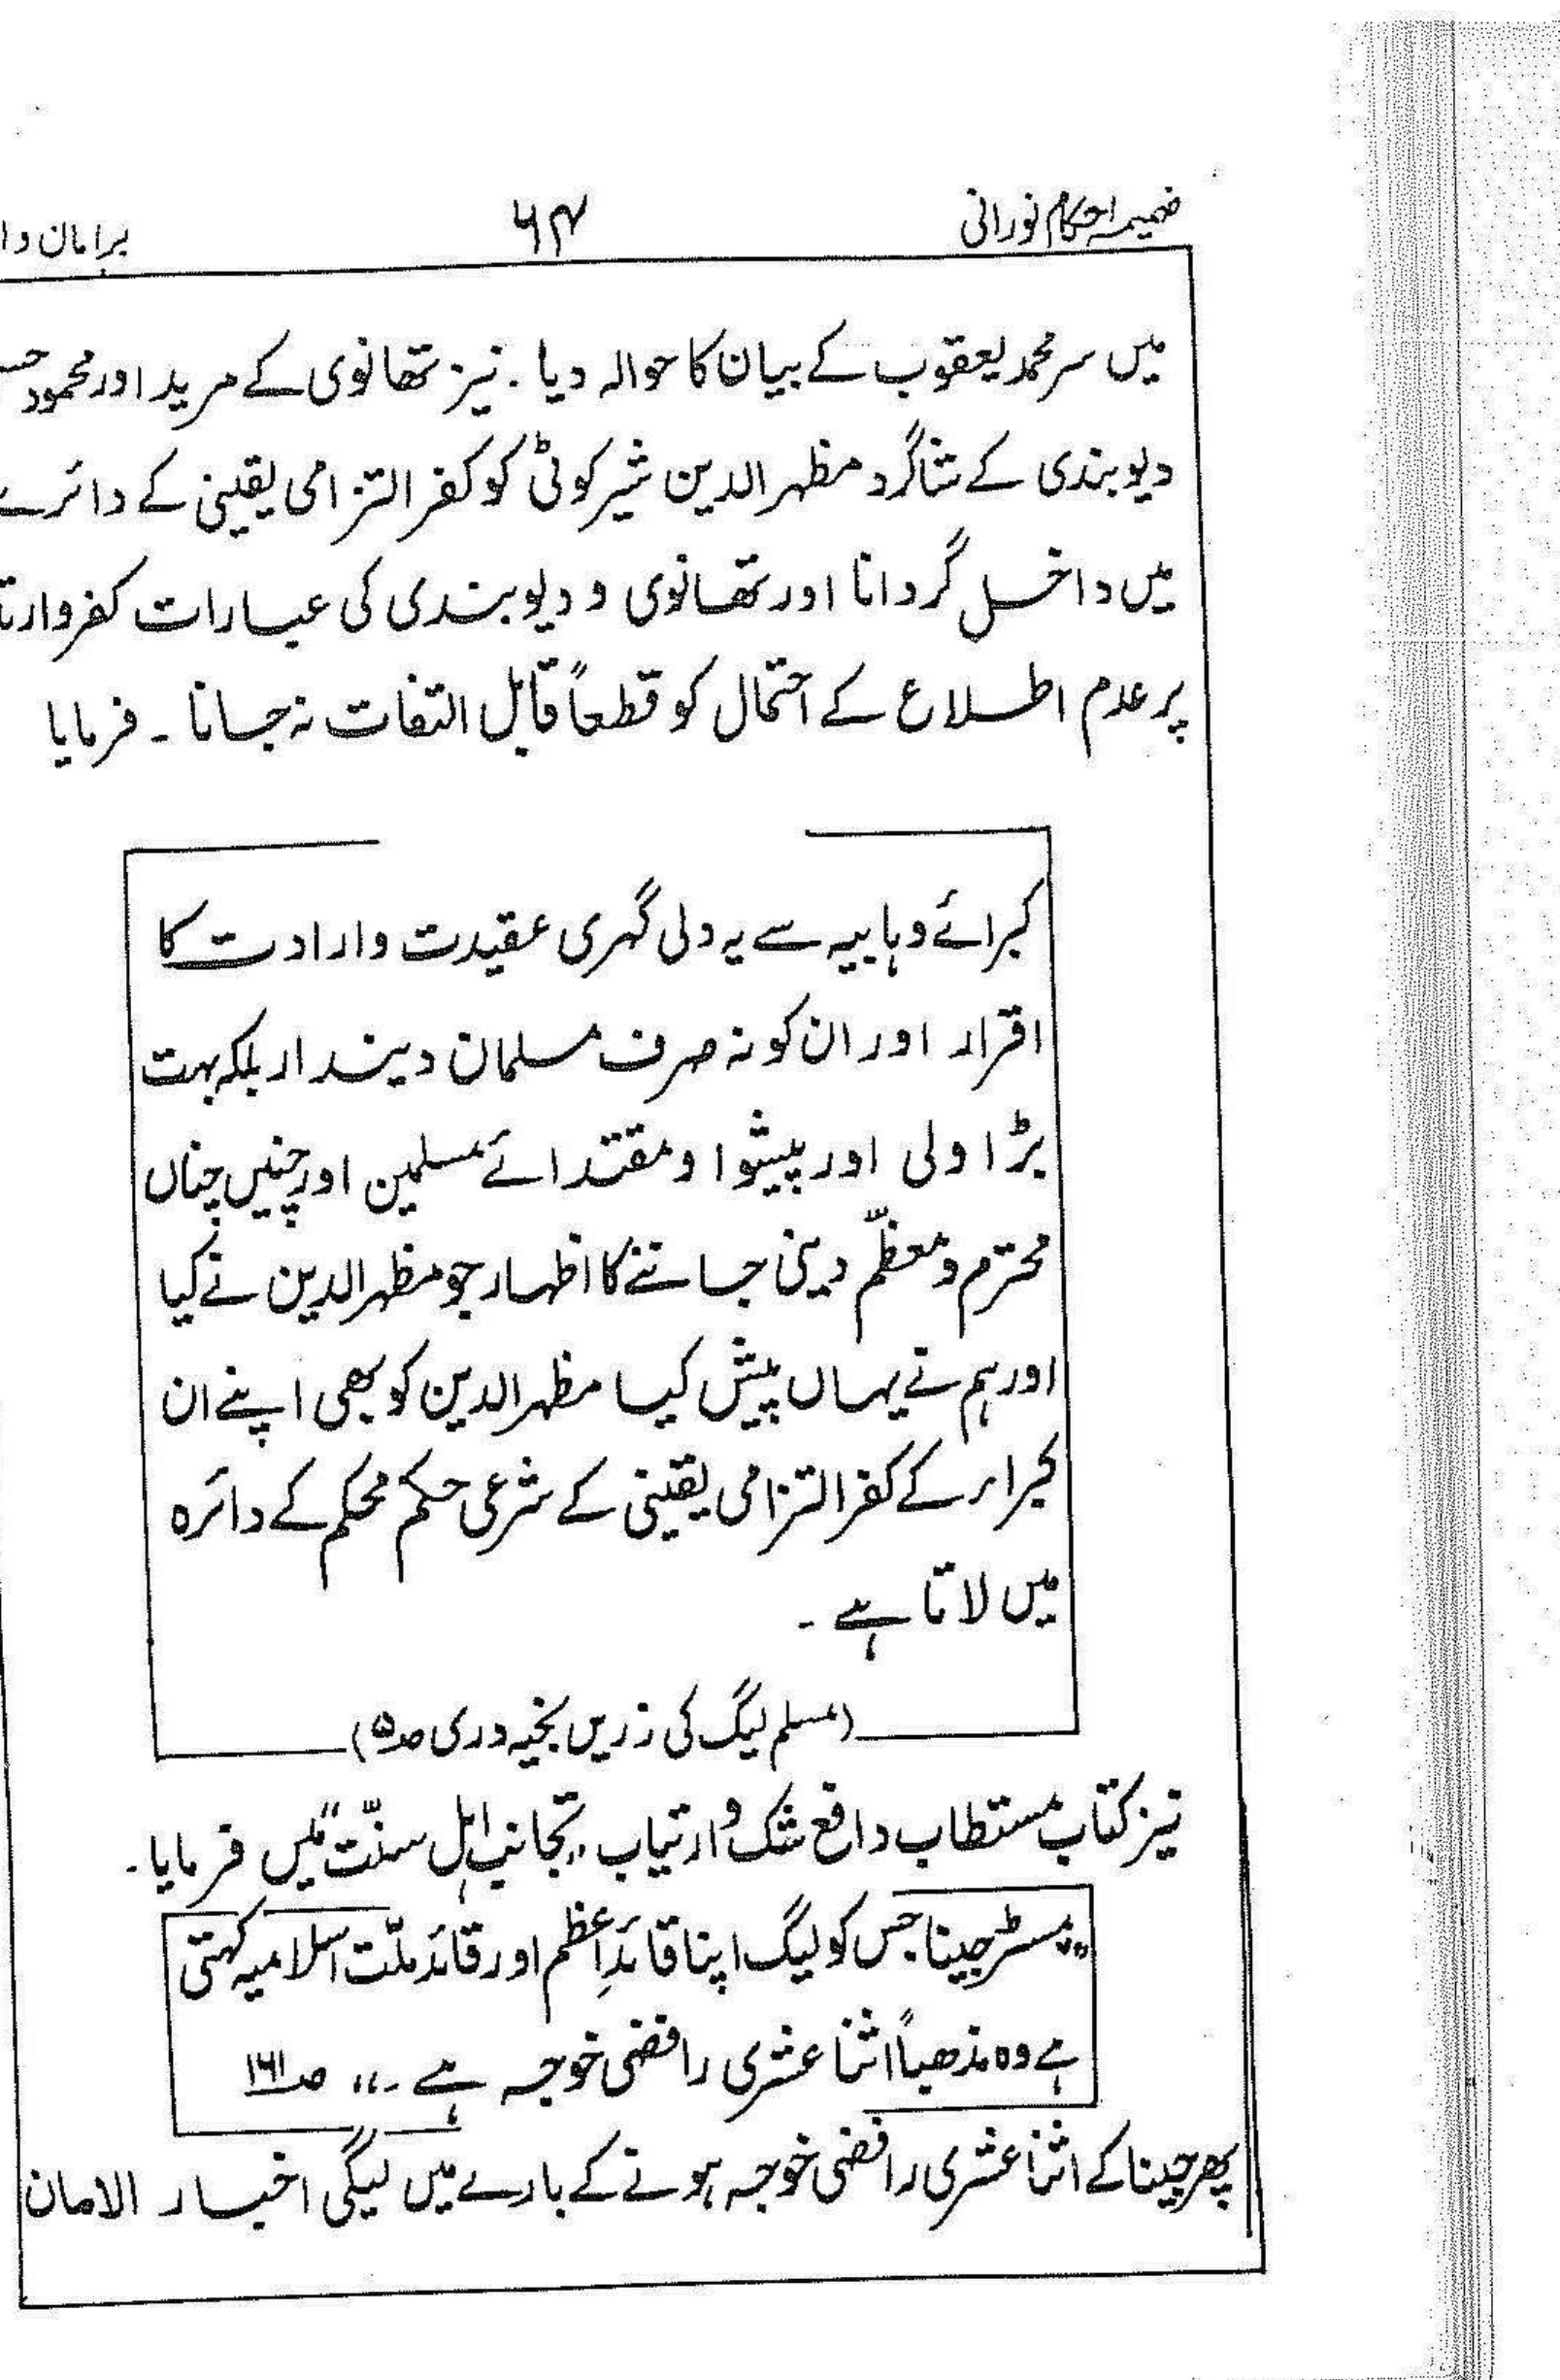 ضمیمہ احکام نورانی ۶۴ برامان وا
میں سر محمد یعقوب کے بیان کا حوالہ دیا۔ نیز تھانوی کے مرید اور محمود حسـ
دیوبندی کے شاگرد مظہر الدین شیرکوٹی کو کفر التزامی یقینی کے دائرے
میں داخل گردانا اور تھانوی و دیوبندی کی عبارات کفر وارتـ
پر عدم اطلاع کے احتمال کو قطعاً قابل التفات نہ جانا ۔ فرمایا
کبرائے وہابیہ سے یہ دلی گہری عقیدت وارادت کا
اقرار اور ان کو نہ صرف مسلمان دیندار بلکہ بہت
بڑا ولی اور پیشوا و مقتدائے مسلمین اور چنیں چناں
محترم و معظّم دینی جاننے کا اظہار جو مظہر الدین نے کیا
اور ہم نے یہاں پیش کیا مظہر الدین کو بھی اپنے ان
کبراء کے کفر التزامی یقینی کے شرعی حکم محکم کے دائرہ
میں لاتا ہے ۔
(مسلم لیگ کی زریں بخیہ دری صـ۵)
نیز کتاب مستطاب دافع شک و ارتیاب ,,تجانب اہل سنّت‘‘ میں فرمایا۔
,,مسٹر جینا جس کو لیگ اپنا قائدِ اعظم اور قائد ملّت اسلامیہ کہتی
ہے وہ مذھباً اثنا عشری رافضی خوجہ ہے ۔،، صـ۱۶۱
پھر جینا کے اثنا عشری رافضی خوجہ ہونے کے بارے میں لیگی اخبار الامان